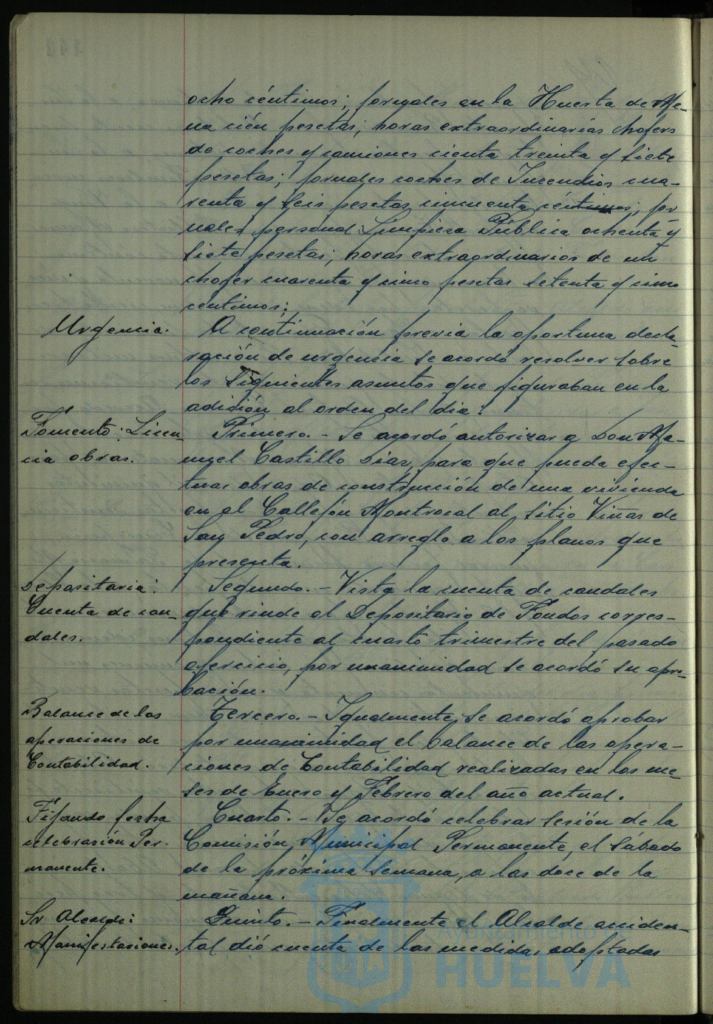 ocho céntimos; jornales en la Huerta de Me-
na cién pesetas; horas extraordinarias chofers
de coches y camiones ciento treinta y siete
pesetas; jornales coches de Incendios cua-
renta y seis pesetas cincuenta céntimos; jor-
nales personal Limpieza Pública ochenta y
siete pesetas; horas extraordinarios de un
chofer cuarenta y cinco pesetas setenta y cinco
centimos;
Urgencia.
A continuación previa la oportuna decla-
ración de urgencia se acordó resolver sobre
los siguientes asuntos que figuraban en la
adición al orden del dia:
Fomento: Licen-
cia obras.
Primero.- Se acordó autorizar a Don Ma-
nuel Castillo Dias, para que pueda efec-
tuar obras de construcción de una vivienda
en el Callejón Montrocal al sitio Viñas de
San Pedro, con arreglo a los planos que
presenta.
Depositaria:
Cuenta de cau-
dales.
Segundo.- Vista la cuenta de caudales
que rinde el Depositario de Fondos corres-
pondiente al cuarto trimestre del pasado
ejercicio, por unanimidad se acordó su apro-
bación.
Balance de las
operaciones de
Contabilidad.
Tercero.- Igualmente, se acordó aprobar
por unanimidad el balance de las opera-
ciones de Contabilidad realizadas en los me-
ses de Enero y Febrero del año actual.
Fijando fecha
celebrasión Per-
manente.
Cuarto.- Se acordó celebrar sesión de la
Comisión Municipal Permanente, el Sábado
de la próxima semana, a las doce de la
mañana.
Sr Alcalde:
Manifestaciones.
Quinto.- Finalmente el Alcalde acciden-
tal dió cuenta de las medidas adoptadas
HUELVA